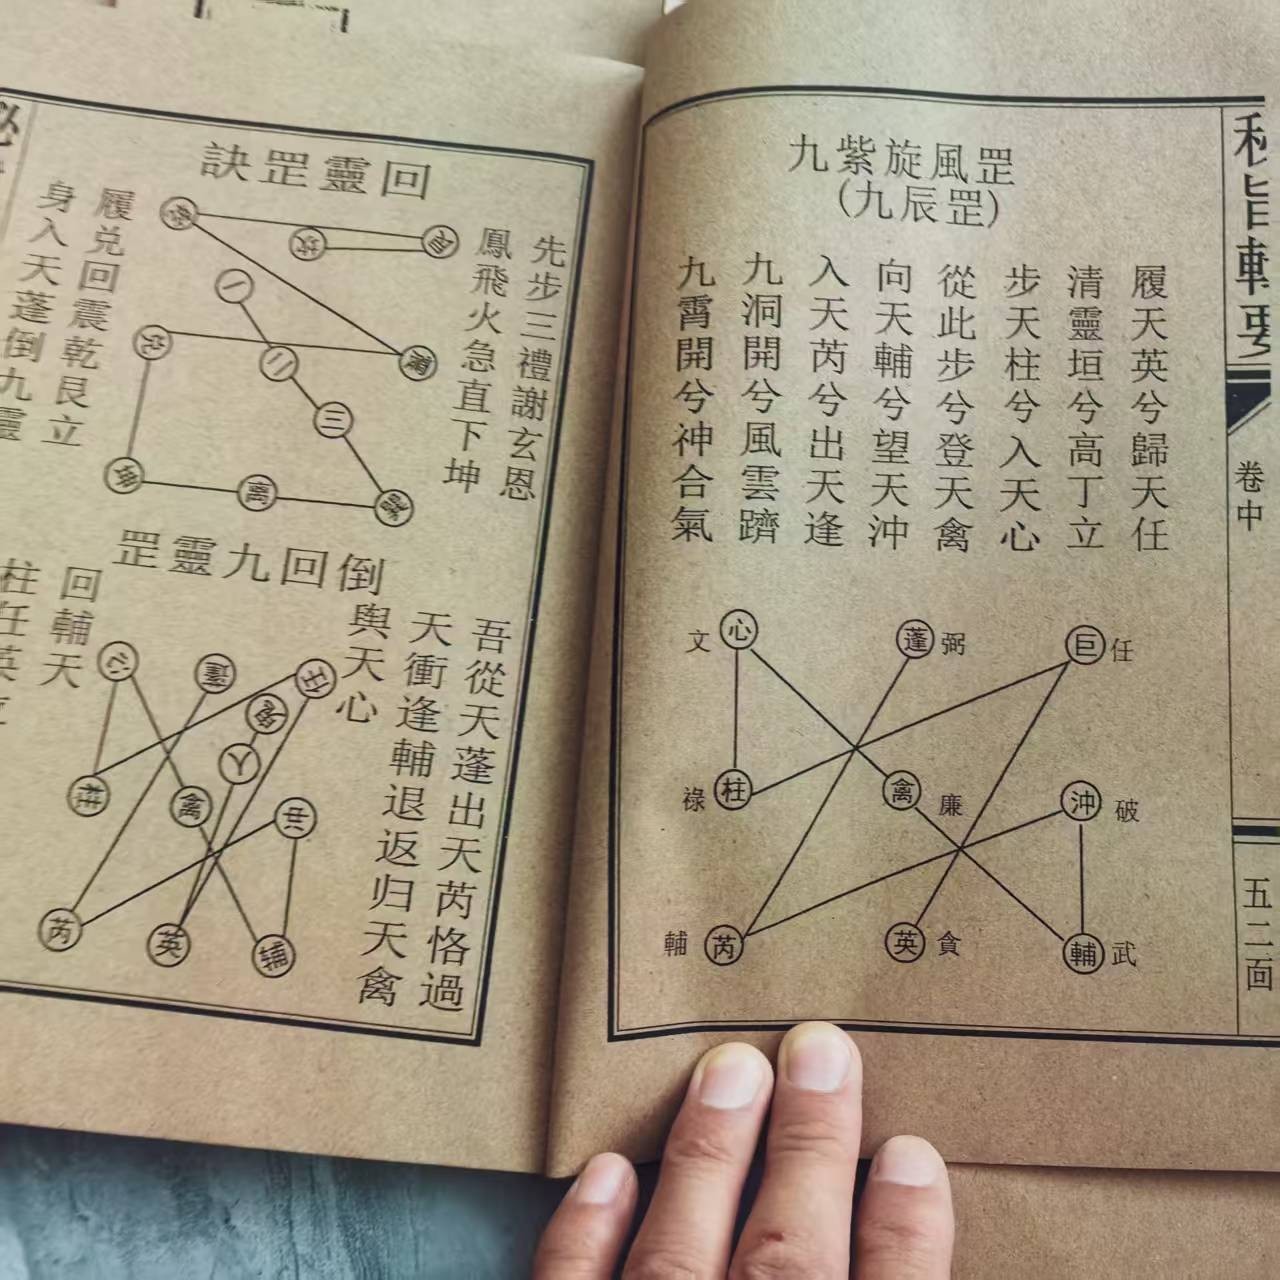 秘旨輯要
卷中
五二面
九紫旋風罡
(九辰罡)
履天英兮歸天任
清靈垣兮高丁立
步天柱兮入天心
從此步兮登天禽
向天輔兮望天沖
入天芮兮出天逢
九洞開兮風雲躋
九霄開兮神合氣
文 心 蓬 弼 巨 任
祿 柱 禽 廉 沖 破
輔 芮 英 貪 輔 武
訣罡靈回
先步三禮謝玄恩
鳳飛火急直下坤
履兑回震乾艮立
身入天蓬倒九靈
坎
一
兑 二
三
離
罡靈九回倒
吾從天蓬出天芮恪過
天衝逢輔退返归天禽
與天心
回輔天
柱任英
心 蓬 任
人
柱 禽
芮 英 輔